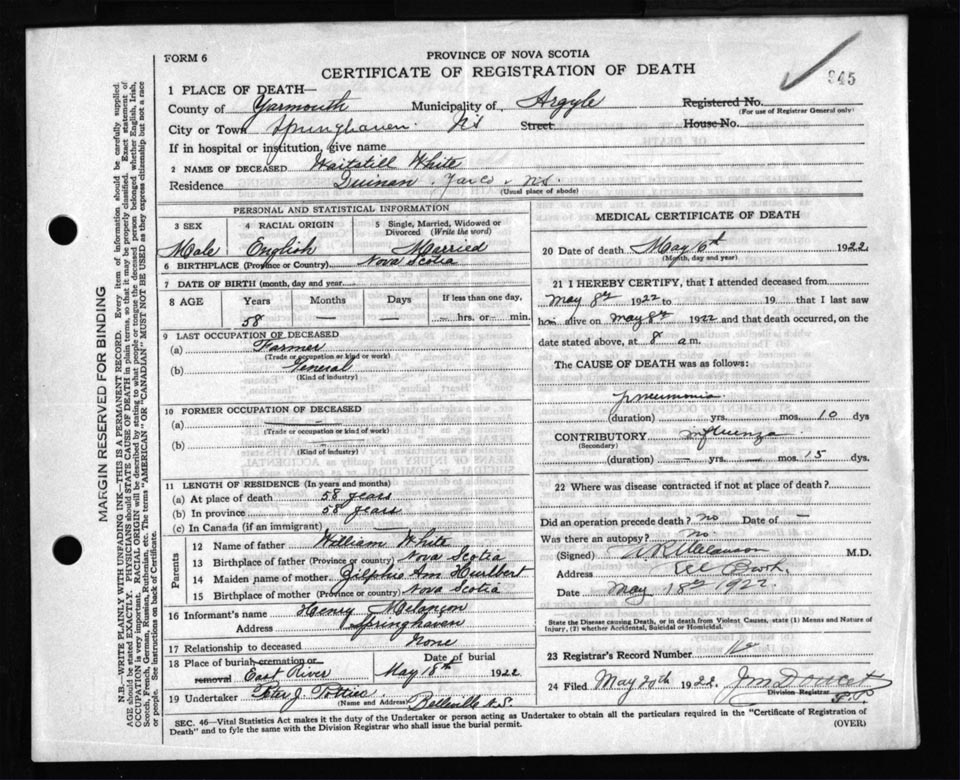 FORM 6
PROVINCE OF NOVA SCOTIA
CERTIFICATE OF REGISTRATION OF DEATH
945
1 PLACE OF DEATH—
County of Yarmouth Municipality of Argyle Registered No.
(For use of Registrar General only)
City or Town Springhaven N.S Street House No.
If in hospital or institution, give name
2 NAME OF DECEASED Waitstill White
Residence Quinan Yar Co N.S.
(Usual place of abode)
MARGIN RESERVED FOR BINDING
N.B.—WRITE PLAINLY WITH UNFADING INK—THIS IS A PERMANENT RECORD. Every item of information should be carefully supplied
AGE should be stated EXACTLY. PHYSICIANS should STATE CAUSE OF DEATH in plain terms, so that it may be properly classified. Exact statement of
OCCUPATION is very important. RACIAL ORIGIN will be described by stating to what people or tongue the deceased person belonged whether English, Irish,
Scotch, French, German, Russian, Ruthenian, etc. The terms "AMERICAN" OR "CANADIAN" MUST NOT BE USED as they express citizenship but not a race
or people. See instructions on back of Certificate.
PERSONAL AND STATISTICAL INFORMATION
3 SEX 4 RACIAL ORIGIN 5 Single, Married, Widowed or
Divorced (Write the word)
Male English Married
6 BIRTHPLACE (Province or Country) Nova Scotia
7 DATE OF BIRTH (month, day and year)
8 AGE Years Months Days If less than one day,
58 — — — hrs. or — min.
9 LAST OCCUPATION OF DECEASED
(a) Farmer
(Trade or occupation or kind or work)
(b) General
(Kind of industry)
10 FORMER OCCUPATION OF DECEASED
(a) —
(Trade or occupation or kind of work)
(b) —
(Kind of industry)
11 LENGTH OF RESIDENCE (In years and months)
(a) At place of death 58 years
(b) In province 58 years
(c) In Canada (if an immigrant)
Parents
12 Name of father William White
13 Birthplace of father (Province or country) Nova Scotia
14 Maiden name of mother Zilphie Ann Hurlbert
15 Birthplace of mother (Province or country) Nova Scotia
16 Informant's name Henry Melancon
Address Springhaven
17 Relationship to deceased None
18 Place of burial cremation or Date of burial
removal East River May 8th 1922
19 Undertaker Peter J. Pottier
(Name and Address) Belleville N.S.
MEDICAL CERTIFICATE OF DEATH
20 Date of death May 6th 1922
(Month, day and year)
21 I HEREBY CERTIFY, that I attended deceased from
May 8th 1922 to 19 that I last saw
him alive on May 8th 1922 and that death occurred, on
date stated above, at 8 a.m.
The CAUSE OF DEATH was as follows:
Pneumonia
(duration) yrs. mos. 10 dys
CONTRIBUTORY Influenza
(Secondary)
(duration) — yrs. — mos. 15 dys.
22 Where was disease contracted if not at place of death?
Did an operation precede death? No Date of —
Was there an autopsy? No.
(Signed) M.D.
Address Eel Brook
Date May 18th 1922
State the Disease causing Death, or in death from Violent Causes, state (1) Means and Nature of
Injury, (2) whether Accidental, Suicidal or Homicidal.
23 Registrar's Record Number
24 Filed May 20th 1922 J M Doucet
Division Registrar
SEC. 46—Vital Statistics Act makes it the duty of the Undertaker or person acting as Undertaker to obtain all the particulars required in the "Certificate of Registration of
Death" and to fyle the same with the Division Registrar who shall issue the burial permit. (OVER)